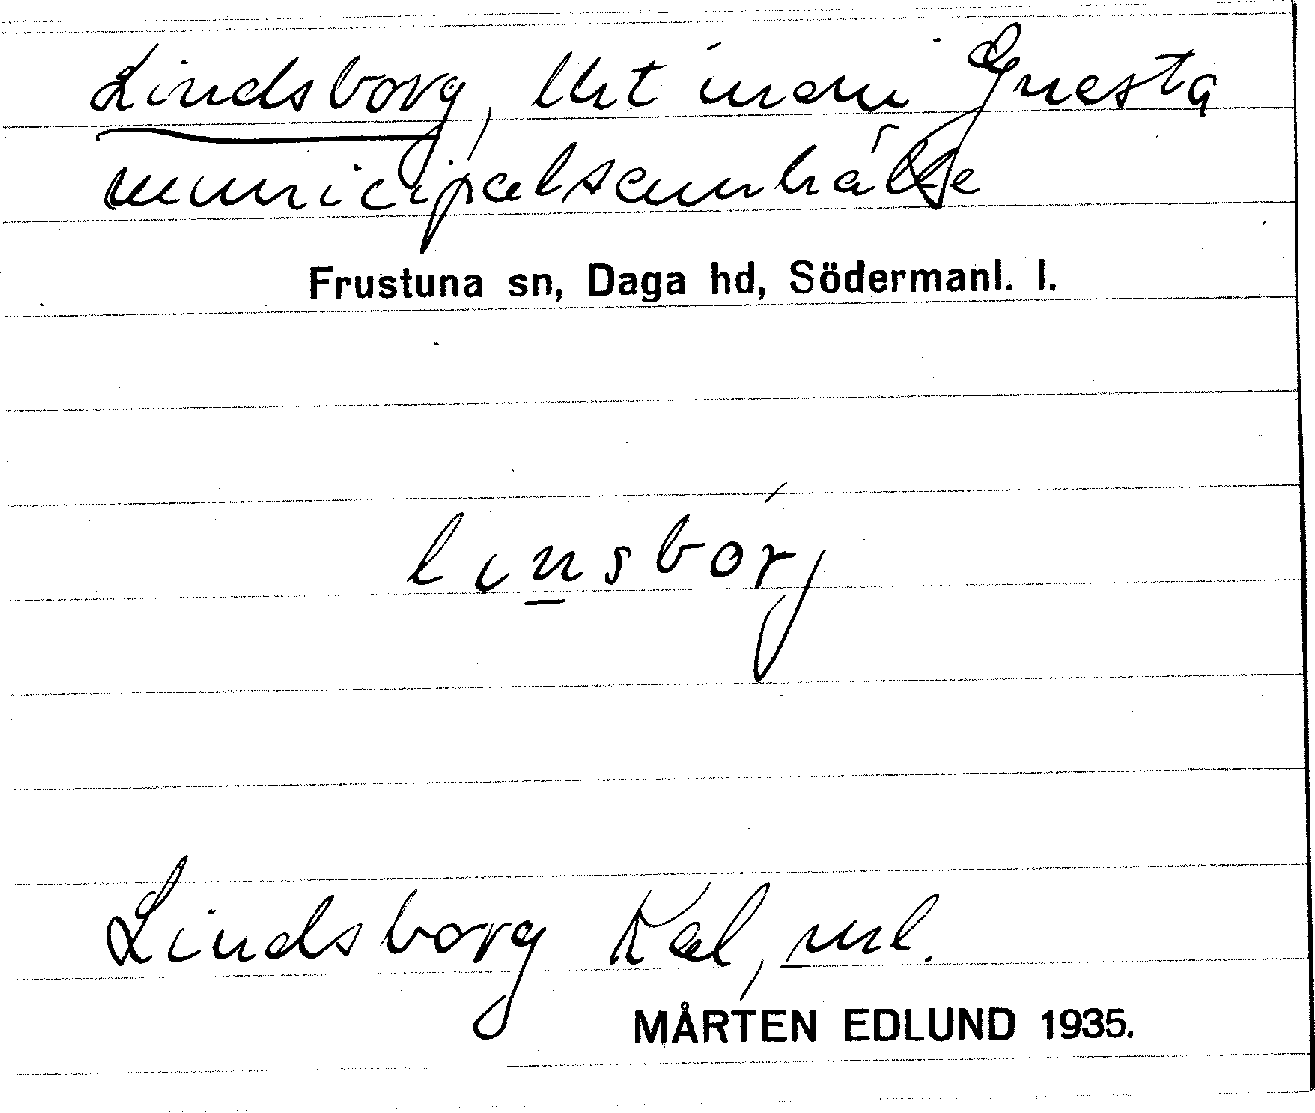 Lindsborg, lht inom Gnesta
municipalsamhälle
Frustuna sn, Daga hd, Södermanl. l.
linsborj
Lindsborg Kal, ml.
MÅRTEN EDLUND 1935.